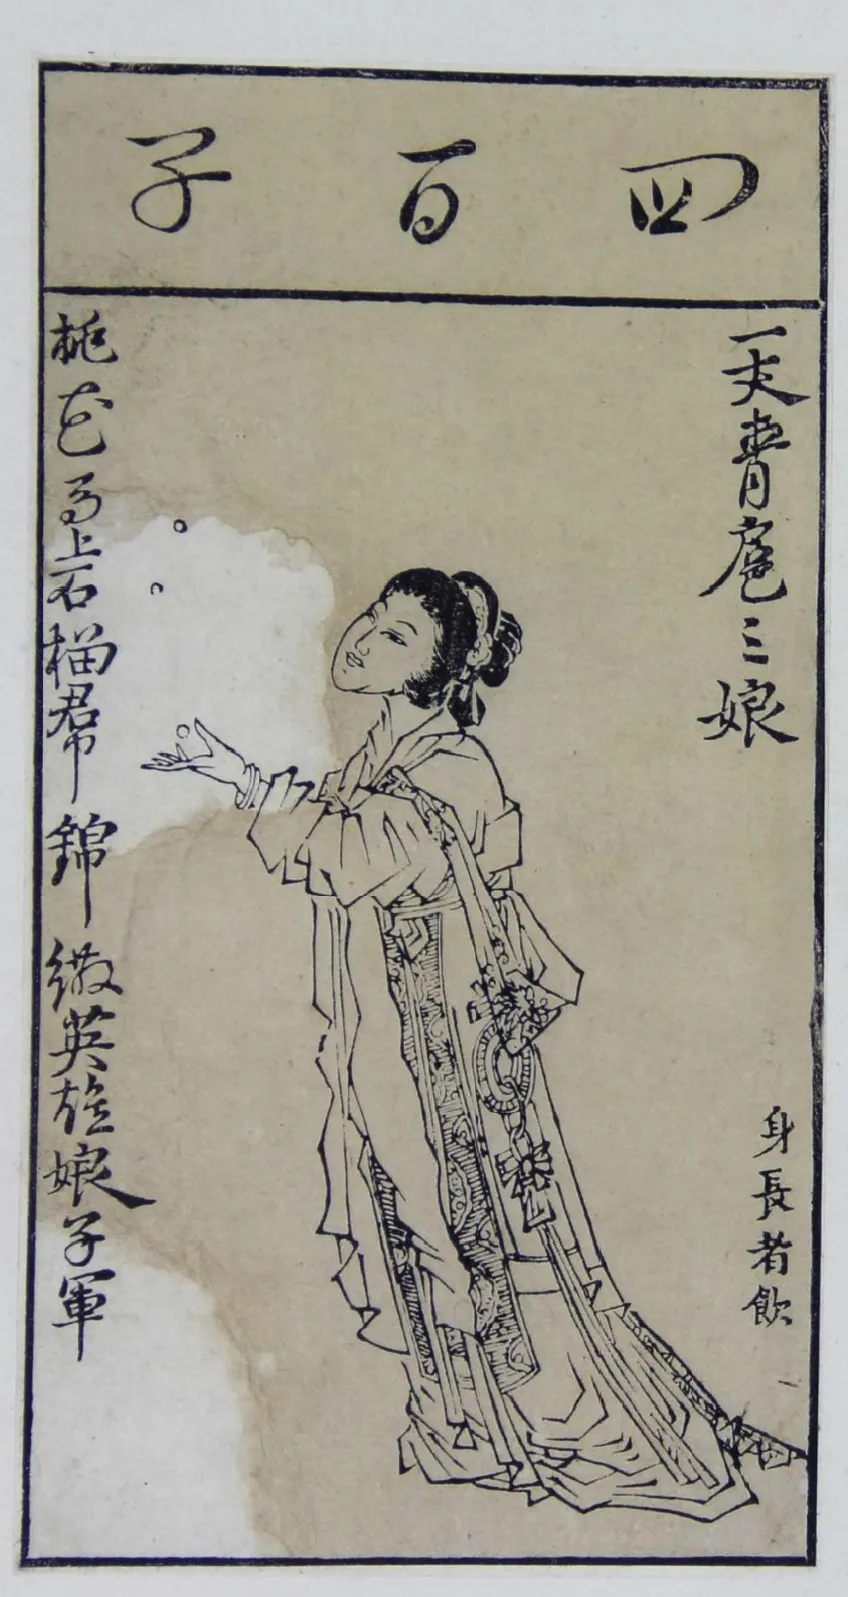 四百子
一丈青扈三娘
身長者飲
桃花馬上石榴帬錦繖英雄娘子軍